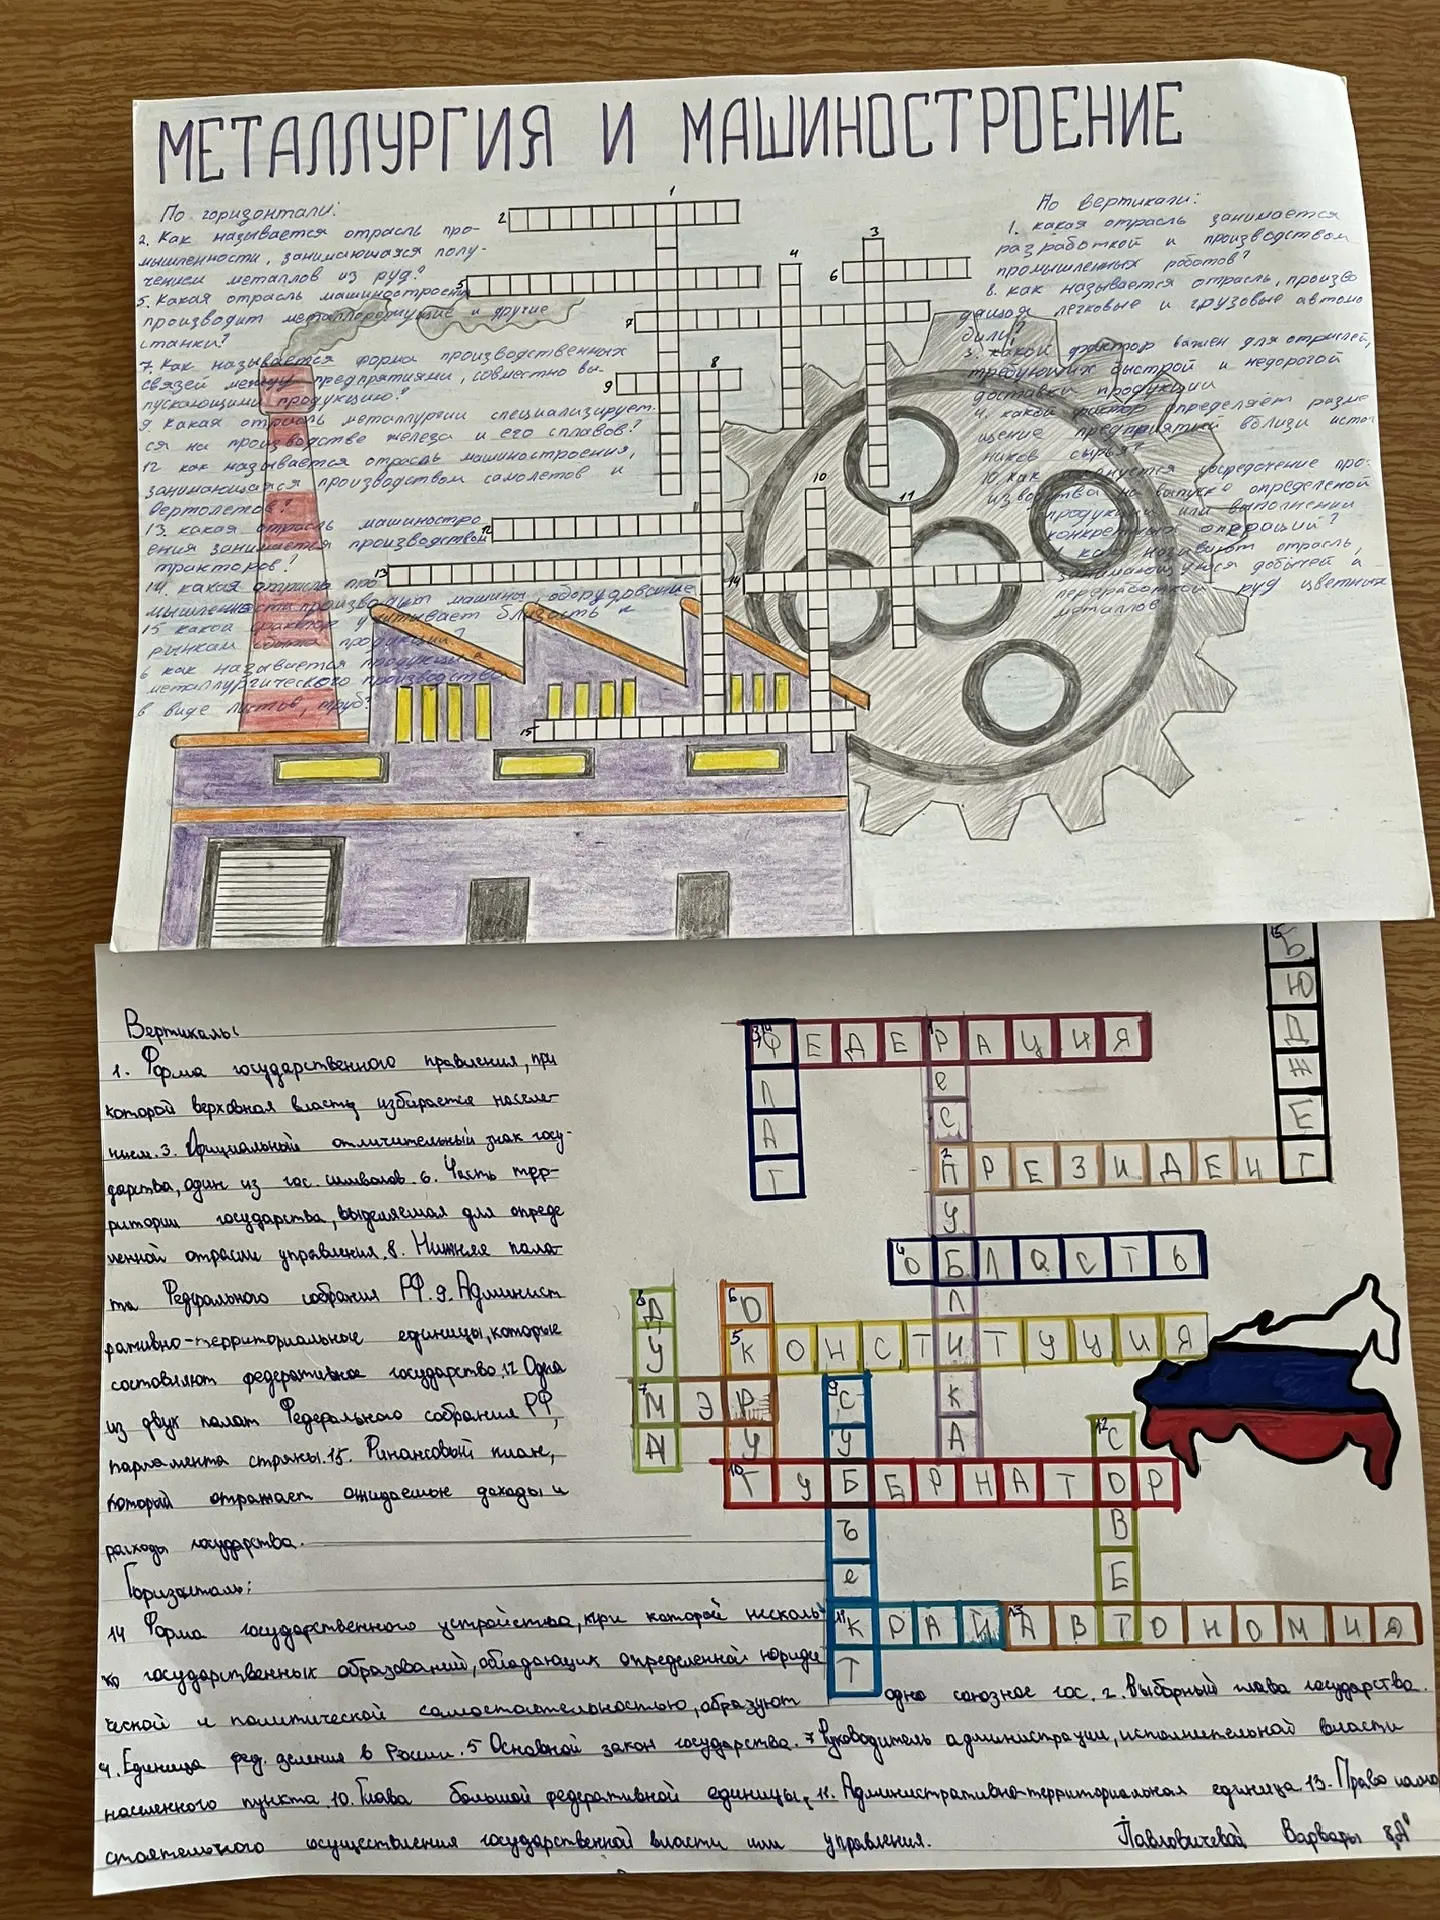 МЕТАЛЛУРГИЯ И МАШИНОСТРОЕНИЕ
По горизонтали:
2. Как называется отрасль про-
мышленности, занимающаяся полу-
чением металлов из руд?
5. Какая отрасль машиностроения
производит металлорежущие и другие
станки?
7. Как называется форма производственных
связей между предпрятиями, совместно вы-
пускающими продукцию?
9. Какая отрасль металлургии специализирует-
ся на производстве железа и его сплавов?
12 как называется отрасль машиностроения,
занимающаяся производством самолетов и
вертолетов?
13. какая отрасль машиностро
ения занимается производством
тракторов?
14. какая отрасль про
мышленности производит машины, оборудование
15 какой фактор учитывает близость к
рынкам сбыта продукции?
6 как называется продукция
металлургического производства
в виде листов, труб?
По вертикали:
1. какая отрасль занимается
разработкой и производством
промышленных роботов?
8. как называется отрасль, произво
дящая легковые и грузовые автомо
били?
3. какой фактор важен для отраслей,
требующих быстрой и недорогой
доставки продукции
4. какой фактор определяет разме
щение предприятий вблизи источ
ников сырья?
10. как именуется сосредочение про-
изводства на выпуске определеной
продукции или выполнении
конкретных операций?
как называют отрасль,
занимающуюся добычей и
переработкой руд цветных
металлов
1
2
3
4
5
6
7
8
9
10
11
12
13
14
15
Вертикаль:
1. Форма государственного правления, при
которой верховная власть избирается населе-
нием. 3. Официальный отличительный знак госу-
дарства, один из гос. символов. 6. Часть терр-
ритории государства, выделяемая для опреде
ленной отрасли управления. 8. Нижняя пала-
та Федерального собрания РФ. 9. Админист
ративно-территориальные единицы, которые
составляют федеративное государство. 12 Одна
из двух палат Федерального собрания РФ,
парламента страны. 15. Финансовый план,
который отражает ожидаемые доходы и
расходы государства.
Горизонталь:
14 Форма государственного устройства, при которой несколь
ко государственных образований, обладающих определенной юриди
ческой и политической самостоятельностью, образуют одно союзное гос. 2. Выборный глава государства.
4. Единица фед. деления в России. 5 Основной закон государства. 7 Руководитель администрации, исполнительной власти
населенного пункта. 10. Глава большой федеративной единицы, 11. Административно-территориальная единица. 13. Право само
стоятельного осуществления государственной власти или управления.
Павловичевой Варвары 8"А"
15 БЮДЖЕТ
14 ФЕДЕРАЦИЯ
3 ФЛАГ
1 РеСПУБЛИКА
2 ПРЕЗИДЕНТ
4 ОБЛАСТЬ
8 ДУМА
6 ОКРУГ
5 КОНСТИТУЦИЯ
7 МЭР
9 СУБЪеКТ
12 СОВЕТ
10 ГУБЕРНАТОР
11 КРАЙ
13 АВТОНОМИЯ